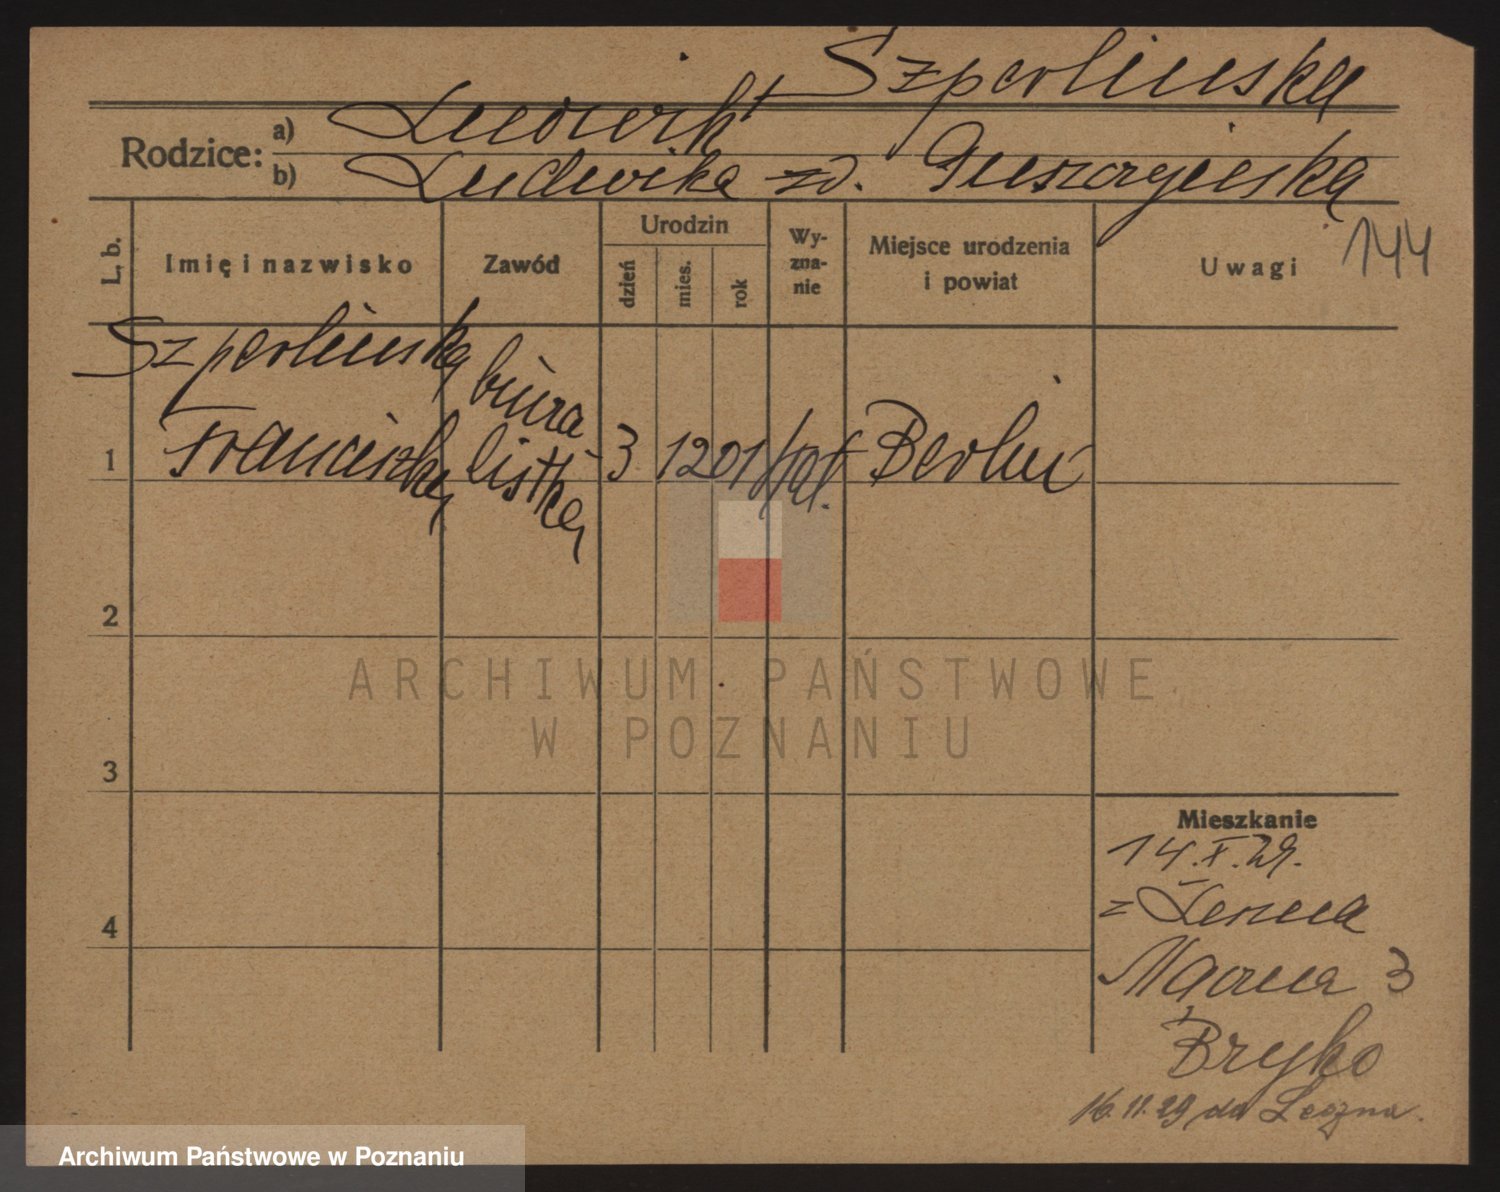 Szperlińska
Rodzice: a) Ludwik †
b) Ludwika zd.
144
L. b. Imię i nazwisko Zawód Urodzin dzień mies. rok Wyznanie Miejsce urodzenia i powiat Uwagi
Szperlińska biura-
1 Franciszka listka 3 12 01 kat. Berlin
2
3
4
ARCHIWUM PAŃSTWOWE
W POZNANIU
Mieszkanie
14.X.29.
z Leszna
3
Bryko
16.11.29 do Leszna.
Archiwum Państwowe w Poznaniu